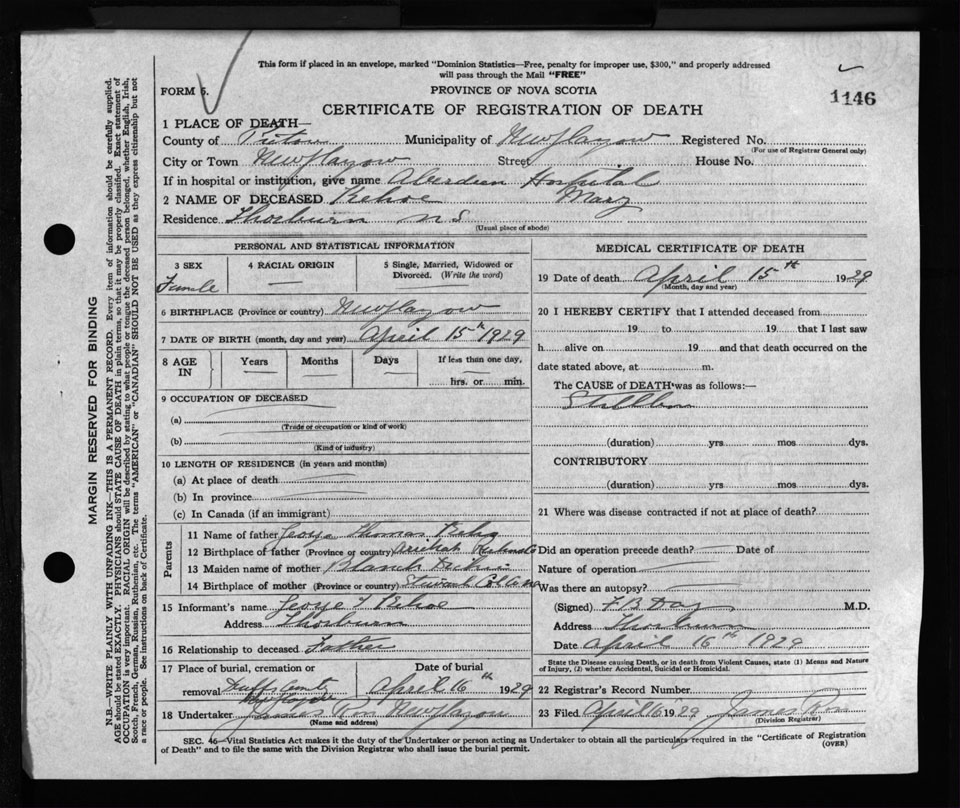 This form if placed in an envelope, marked "Dominion Statistics—Free, penalty for improper use, $300," and properly addressed
will pass through the Mail "FREE"
FORM 5.
PROVINCE OF NOVA SCOTIA
1146
CERTIFICATE OF REGISTRATION OF DEATH
1 PLACE OF DEATH—
County of Pictou Municipality of New Glasgow Registered No.
(For use of Registrar General only)
City or Town New Glasgow Street House No.
If in hospital or institution, give name Aberdeen Hospital
2 NAME OF DECEASED Kehoe Mary
Residence Thorburn N S
(Usual place of abode)
PERSONAL AND STATISTICAL INFORMATION
3 SEX 4 RACIAL ORIGIN 5 Single, Married, Widowed or
Divorced. (Write the word)
Female
6 BIRTHPLACE (Province or country) New Glasgow
7 DATE OF BIRTH (month, day and year) April 15th 1929
8 AGE IN Years Months Days If less than one day,
hrs. or min.
9 OCCUPATION OF DECEASED
(a)
(Trade or occupation or kind of work)
(b)
(Kind of industry)
10 LENGTH OF RESIDENCE (in years and months)
(a) At place of death
(b) In province
(c) In Canada (if an immigrant)
Parents
11 Name of father George Thomas Kehoe
12 Birthplace of father (Province or country) Arichat Richmond Co
13 Maiden name of mother Blanch
14 Birthplace of mother (Province or country) Stewiacke Col Co NS
15 Informant's name George T Kehoe
Address Thorburn
16 Relationship to deceased Father
17 Place of burial, cremation or Date of burial
removal New Glasgow April 16th 1929
18 Undertaker James Ross New Glasgow
(Name and address)
MEDICAL CERTIFICATE OF DEATH
19 Date of death April 15th 1929
(Month, day and year)
20 I HEREBY CERTIFY that I attended deceased from
19 to 19 that I last saw
h alive on 19 and that death occurred on the
date stated above, at m.
The CAUSE of DEATH was as follows:—
Stillborn
(duration) yrs mos dys.
CONTRIBUTORY
(duration) yrs. mos dys.
21 Where was disease contracted if not at place of death?
Did an operation precede death? Date of
Nature of operation
Was there an autopsy?
(Signed) F B Day M.D.
Address Thorburn
Date April 16th 1929
State the Disease causing Death, or in death from Violent Causes, state (1) Means and Nature
of Injury, (2) whether Accidental, Suicidal or Homicidal.
22 Registrar's Record Number
23 Filed April 16 1929 James Ross
(Division Registrar)
SEC. 46—Vital Statistics Act makes it duty of the Undertaker or person acting as Undertaker to obtain all the particulars required in the "Certificate of Registration
of Death" and to file the same with the Division Registrar who shall issue the burial permit.
(OVER)
MARGIN RESERVED FOR BINDING
N.B.—WRITE PLAINLY WITH UNFADING INK—THIS IS A PERMANENT RECORD. Every item of information should be carefully supplied.
AGE should be stated EXACTLY. PHYSICIANS should STATE CAUSE OF DEATH in plain terms, so that it may be properly classified. Exact statement of
OCCUPATION is very important. RACIAL ORIGIN will be described by stating to what people or tongue the deceased person belonged, whether English, Irish,
Scotch, French, German, Russian, Ruthenian, etc. The terms "AMERICAN" or "CANADIAN" SHOULD NOT BE USED as they express citizenship but not
a race or people. See instructions on back of Certificate.